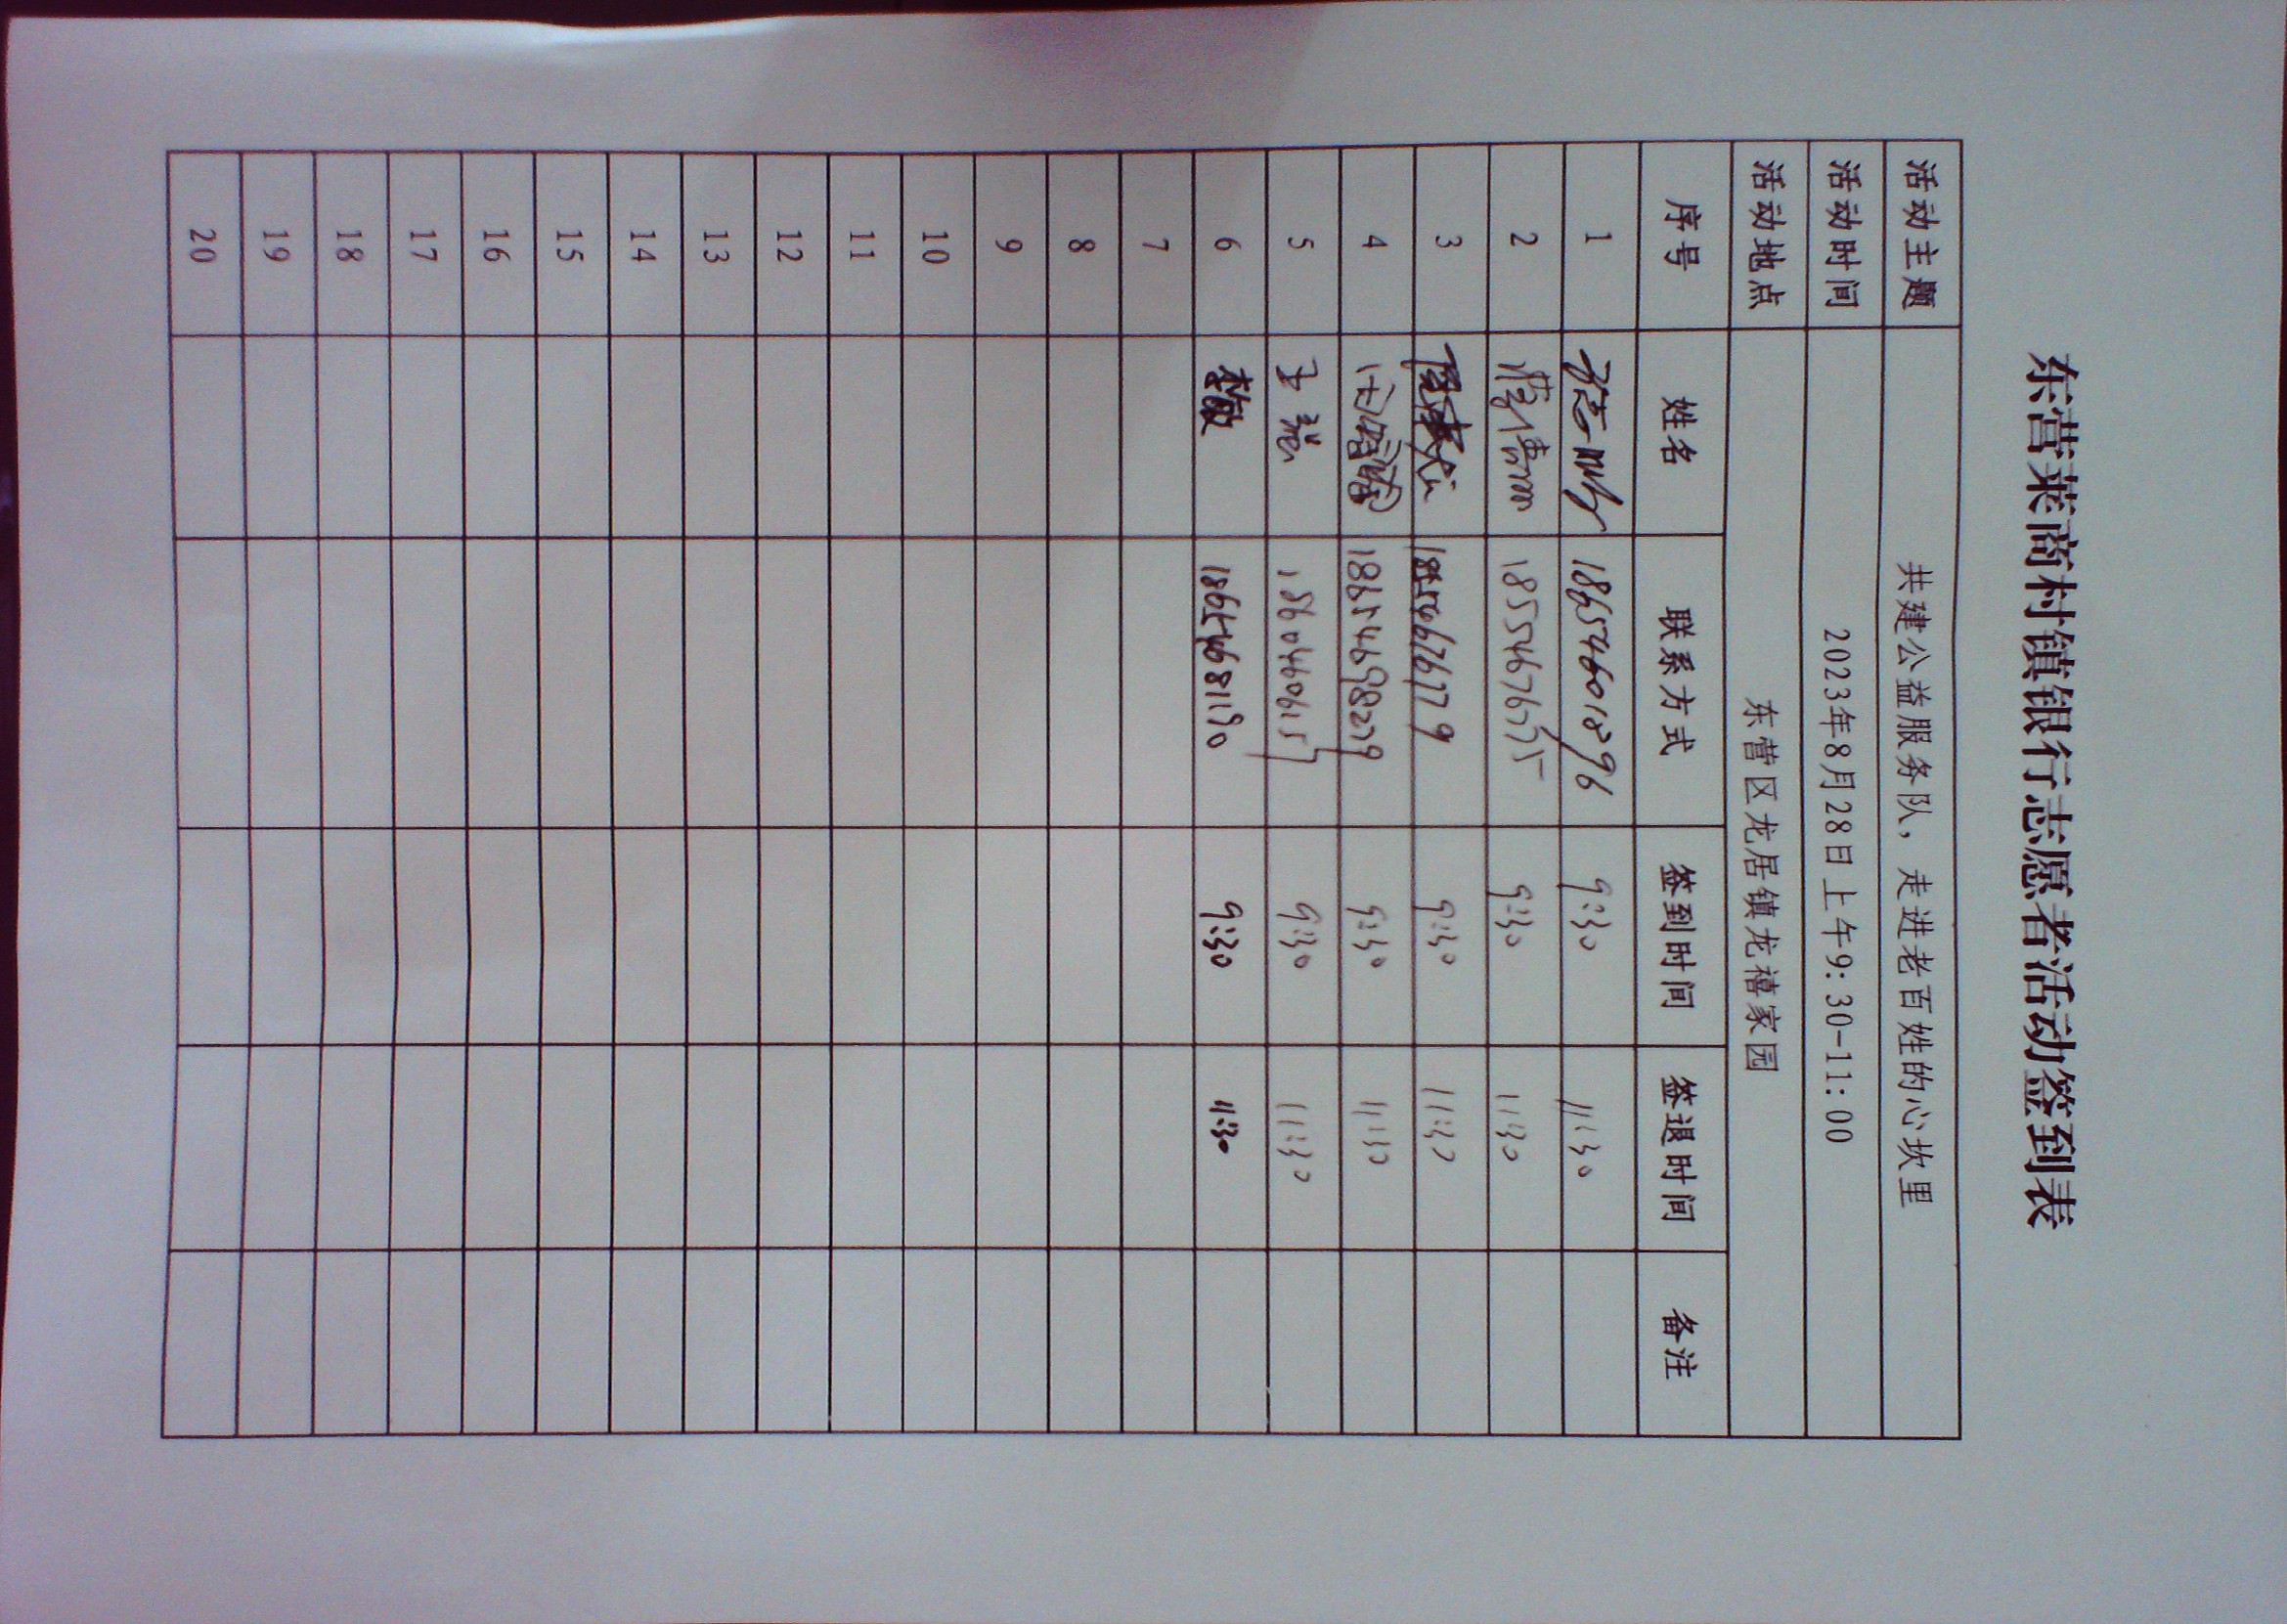 东营莱商村镇银行志愿者活动签到表
活动主题 共建公益服务队，走进老百姓的心坎里
活动时间 2023年8月28日上午9:30-11:00
活动地点 东营区龙居镇龙禧家园
序号 姓名 联系方式 签到时间 签退时间 备注
1 18654601896 9:30 11:30
2 18554676775 9:30 11:30
3 9:30 11:30
4 18654698279 9:30 11:30
5 18604460615 9:30 11:30
6 李敏 18654681190 9:30 11:30
7
8
9
10
11
12
13
14
15
16
17
18
19
20